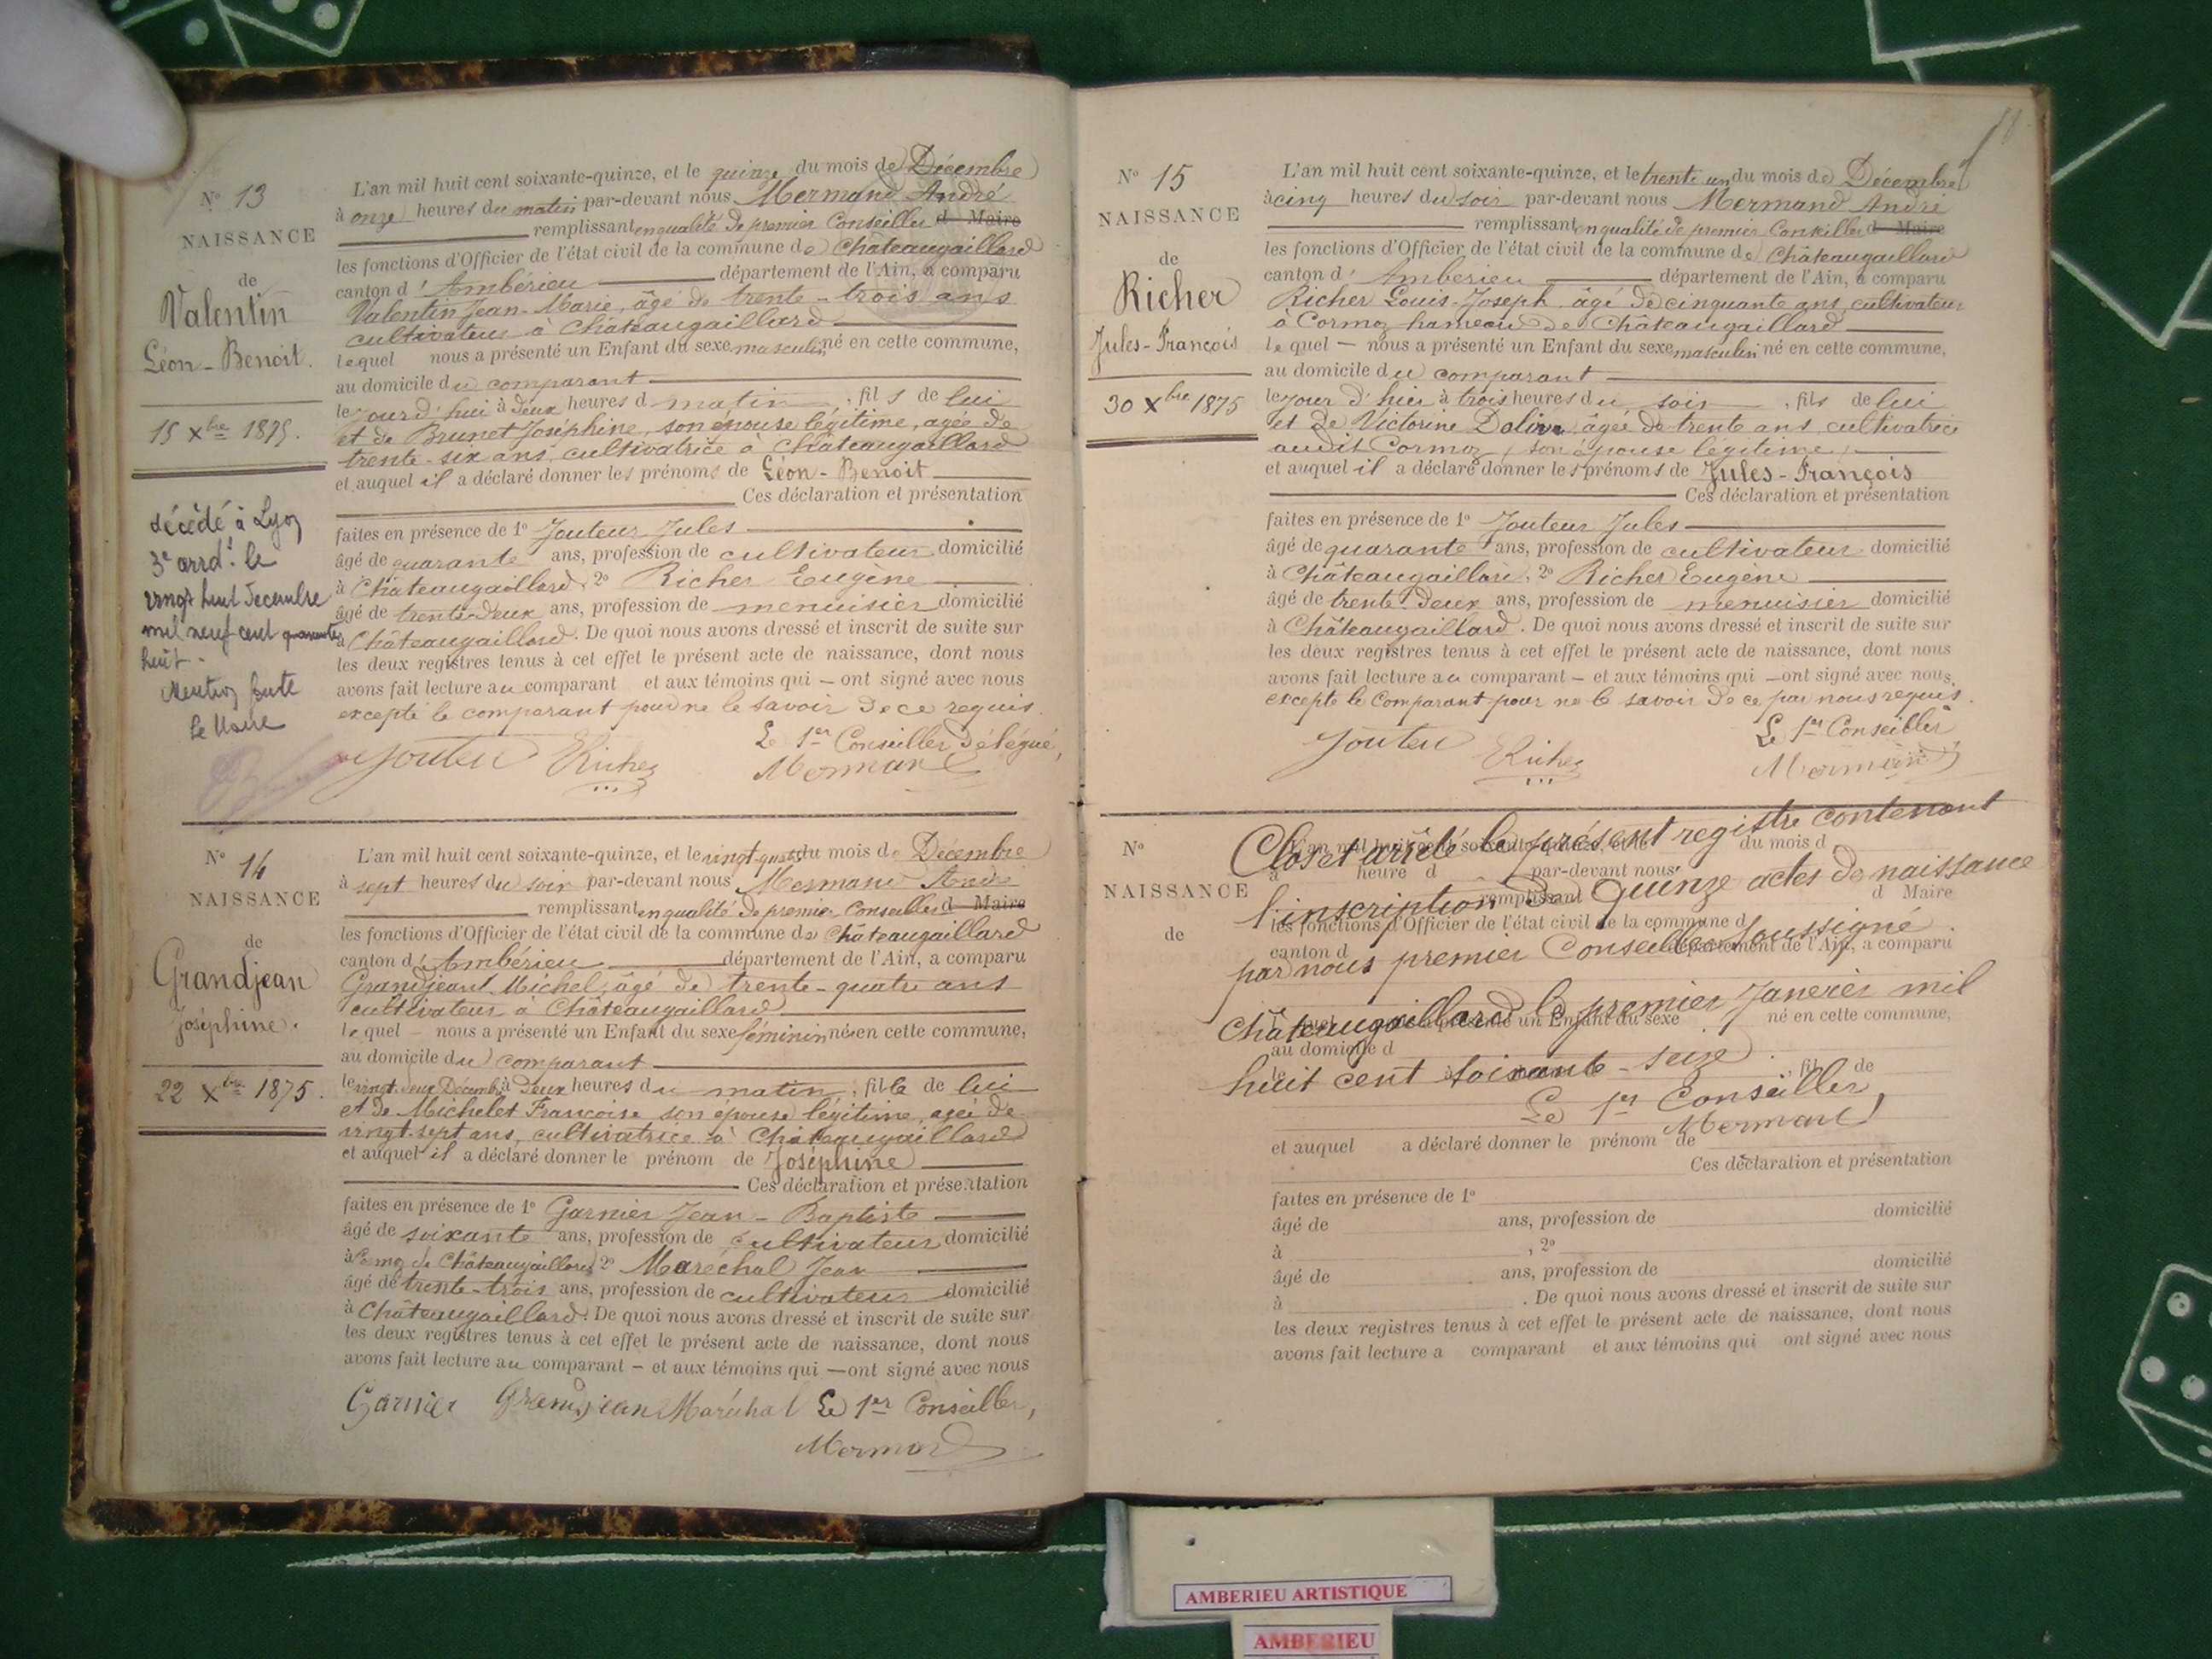 N° 13
NAISSANCE
de
Valentin
Léon-Benoit.
15 Xbre 1875.
décédé à Lyon
3e arrdt. le
vingt huit Decembre
mil neuf cent quarante
huit -
Mention faite
Le Maire
L'an mil huit cent soixante-quinze, et le quinze du mois de Décembre
à onze heures du matin par-devant nous Mermand André
remplissant en qualité de premier Conseiller d Maire
les fonctions d'Officier de l'état civil de la commune de Châteaugaillard
canton d'Ambérieu département de l'Ain, a comparu
Valentin Jean-Marie, âgé de trente-trois ans
cultivateur à Châteaugaillard
lequel nous a présenté un Enfant du sexe masculin né en cette commune,
au domicile du comparant
le jourd'hui à deux heures d matin, fils de lui
et de Brunet Joséphine, son épouse légitime, agée de
trente-six ans, cultivatrice à Châteaugaillard
et auquel il a déclaré donner les prénoms de Léon-Benoit
Ces déclaration et présentation
faites en présence de 1° Jouteur Jules
âgé de quarante ans, profession de cultivateur domicilié
à Châteaugaillard, 2° Richer Eugène
âgé de trente-deux ans, profession de menuisier domicilié
à Châteaugaillard. De quoi nous avons dressé et inscrit de suite sur
les deux registres tenus à cet effet le présent acte de naissance, dont nous
avons fait lecture au comparant et aux témoins qui – ont signé avec nous
excepté le comparant pour ne le savoir de ce requis.
Le 1er Conseiller Délégué,
Jouteu Richer Mermand
N° 14
NAISSANCE
de
Grandjean
Joséphine.
22 Xbre 1875.
L'an mil huit cent soixante-quinze, et le vingt-quatre du mois de Décembre
à sept heures du soir par-devant nous Mermand André
remplissant en qualité de premier Conseiller d Maire
les fonctions d'Officier de l'état civil de la commune de Châteaugaillard
canton d'Ambérieu département de l'Ain, a comparu
Grandjean Michel, âgé de trente-quatre ans
cultivateur à Châteaugaillard
lequel – nous a présenté un Enfant du sexe féminin née en cette commune,
au domicile du comparant
le vingt deux Décembre à deux heures du matin, fille de lui
et de Michelet Françoise son épouse légitime, agée de
vingt-sept ans, cultivatrice à Châteaugaillard
et auquel il a déclaré donner le prénom de Joséphine
Ces déclaration et présentation
faites en présence de 1° Garnier Jean-Baptiste
âgé de soixante ans, profession de cultivateur domicilié
à Cormoz de Châteaugaillard, 2° Maréchal Jean
âgé de trente-trois ans, profession de cultivateur domicilié
à Châteaugaillard. De quoi nous avons dressé et inscrit de suite sur
les deux registres tenus à cet effet le présent acte de naissance, dont nous
avons fait lecture au comparant – et aux témoins qui – ont signé avec nous
Garnier Grandjean Maréchal Le 1er Conseiller,
Mermand
N° 15
NAISSANCE
de
Richer
Jules-François
30 Xbre 1875
L'an mil huit cent soixante-quinze, et le trente un du mois de Décembre
à cinq heures du soir par-devant nous Mermand André
remplissant en qualité de premier Conseiller d Maire
les fonctions d'Officier de l'état civil de la commune de Châteaugaillard
canton d'Amberieu département de l'Ain, a comparu
Richer Louis-Joseph âgé de cinquante ans, cultivateur
à Cormoz hameau de Châteaugaillard
lequel – nous a présenté un Enfant du sexe masculin né en cette commune,
au domicile du comparant
le jour d'hier à trois heures du soir, fils de lui
et de Victorine âgée de trente ans, cultivatrice
audit Cormoz, son épouse légitime,
et auquel il a déclaré donner les prénoms de Jules-François
Ces déclaration et présentation
faites en présence de 1° Jouteur Jules
âgé de quarante ans, profession de cultivateur domicilié
à Châteaugaillard, 2° Richer Eugène
âgé de trente-deux ans, profession de menuisier domicilié
à Châteaugaillard. De quoi nous avons dressé et inscrit de suite sur
les deux registres tenus à cet effet le présent acte de naissance, dont nous
avons fait lecture au comparant – et aux témoins qui – ont signé avec nous,
excepté le Comparant pour ne le savoir de ce par nous requis.
Le 1er Conseiller
Jouteu Richer Mermand
N°
NAISSANCE
de
Clos et arrêté le présent registre contenant
L'an mil huit cent soixante-quinze, et le du mois d
à heure d par-devant nous
l'inscription de Quinze actes de naissance
remplissant d Maire
les fonctions d'Officier de l'état civil de la commune d
par nous premier Conseiller soussigné.
canton d département de l'Ain, a comparu
Châteaugaillard le premier Janvier mil
quel nous a présenté un Enfant du sexe né en cette commune,
au domicile d
huit cent soixante-seize.
le à , fil de
Le 1er Conseiller,
Mermand
et auquel a déclaré donner le prénom de
Ces déclaration et présentation
faites en présence de 1°
âgé de ans, profession de domicilié
à , 2°
âgé de ans, profession de domicilié
à . De quoi nous avons dressé et inscrit de suite sur
les deux registres tenus à cet effet le présent acte de naissance, dont nous
avons fait lecture a comparant et aux témoins qui ont signé avec nous
AMBERIEU ARTISTIQUE
AMBERIEU